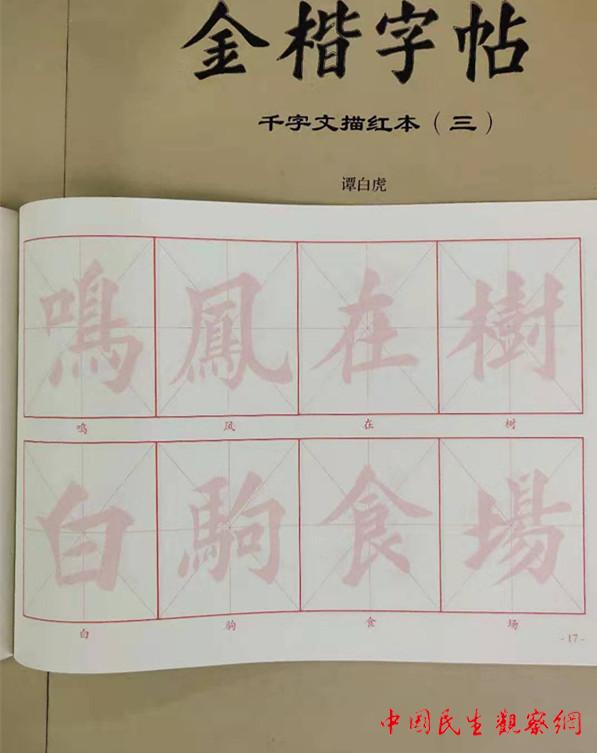 金楷字帖
千字文描红本（三）
谭白虎
鳴鳳在樹
鸣 风 在 树
白駒食場
白 驹 食 场
-17-
中国民生觀察網